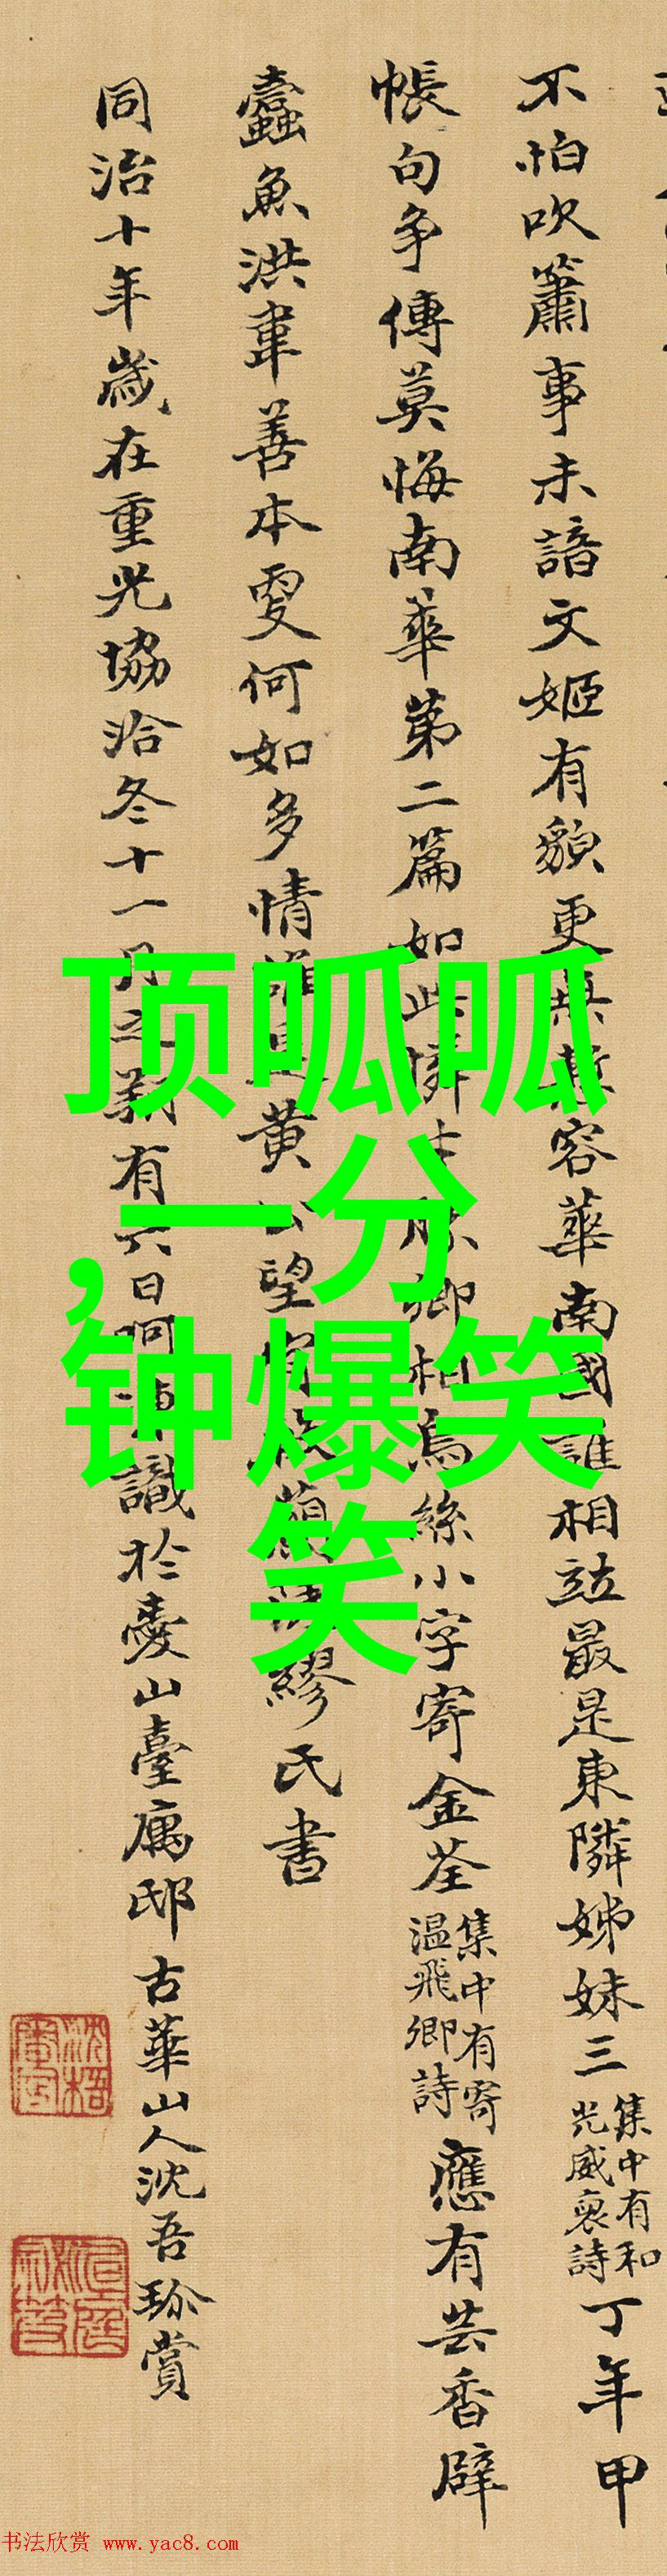 不怕吹簫事未諳文姬有貌更無慙容華南國誰相竝最是東隣姊妹三集中有和光威裒詩丁年甲
帳句争傳莫悔南華第二篇如此憐才勝卿相烏絲小字寄金荃集中有寄温飛卿詩應有芸香辟
蠹魚洪韋善本更何如多情誰是黄公望繆氏書
同治十年歲在重光協洽冬十一月之朔有六日呵凍識於臺山臺寓邸古華山人沈吾珍賞
顶呱呱
,一分
钟爆笑
笑
书法欣赏 www.yac8.com